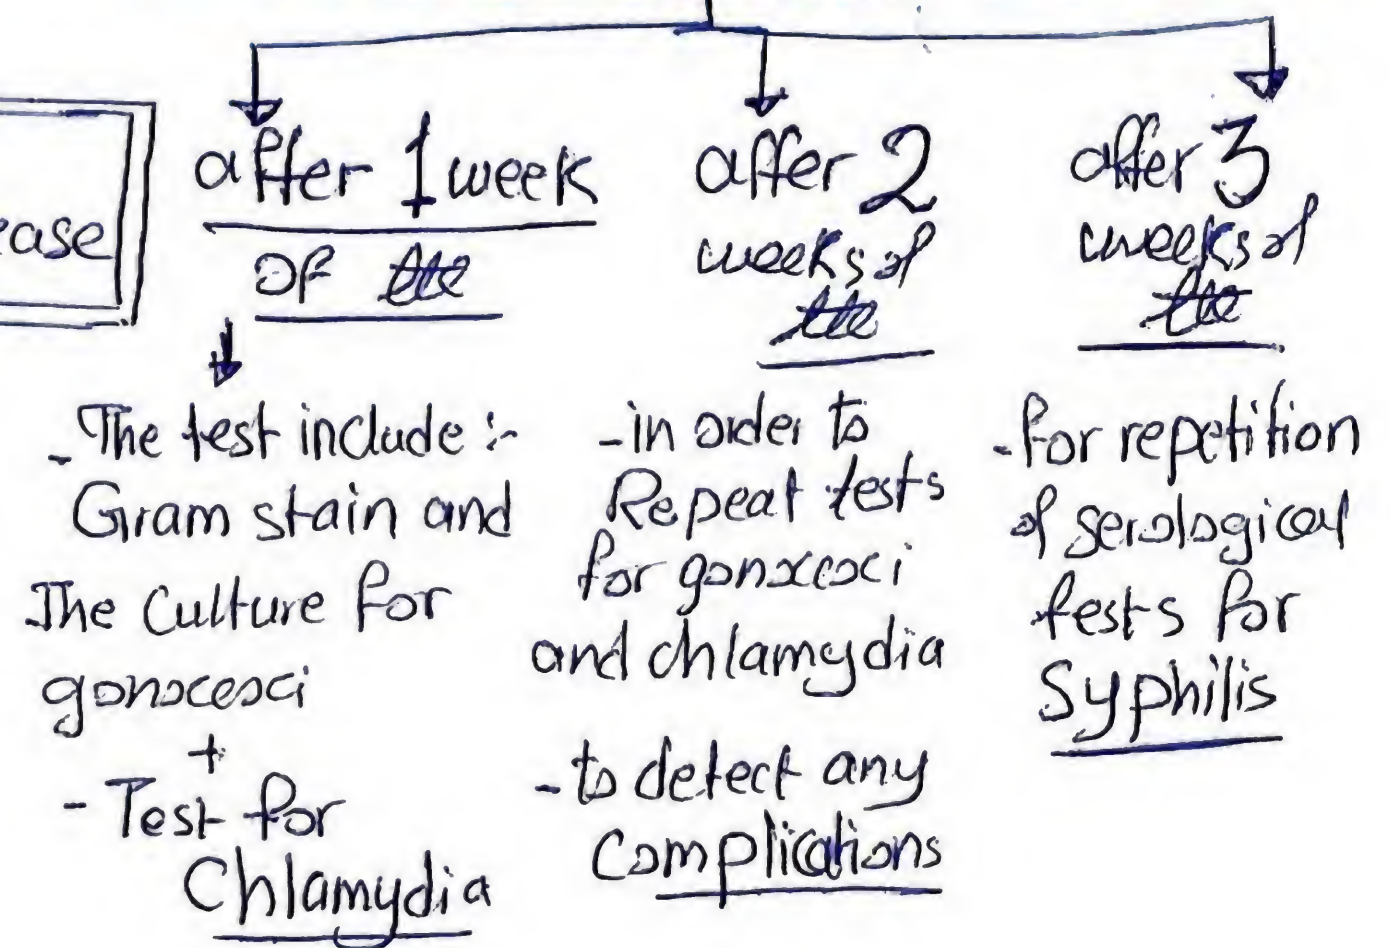 ease
after 1 week
of ttt
- The test include :-
Gram stain and
The Culture for
gonococci
+
- Test for
Chlamydia
after 2
weeks of
ttt
- in order to
Repeat tests
for gonococci
and chlamydia
- to detect any
Complications
after 3
weeks of
ttt
- for repetition
of serological
tests for
Syphilis